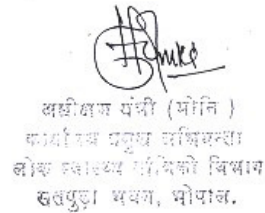 अधीक्षण यंत्री (मोनि)
कार्यालय प्रमुख अभियन्ता
लोक स्वास्थ्य यांत्रिकी विभाग
सतपुड़ा भवन, भोपाल.